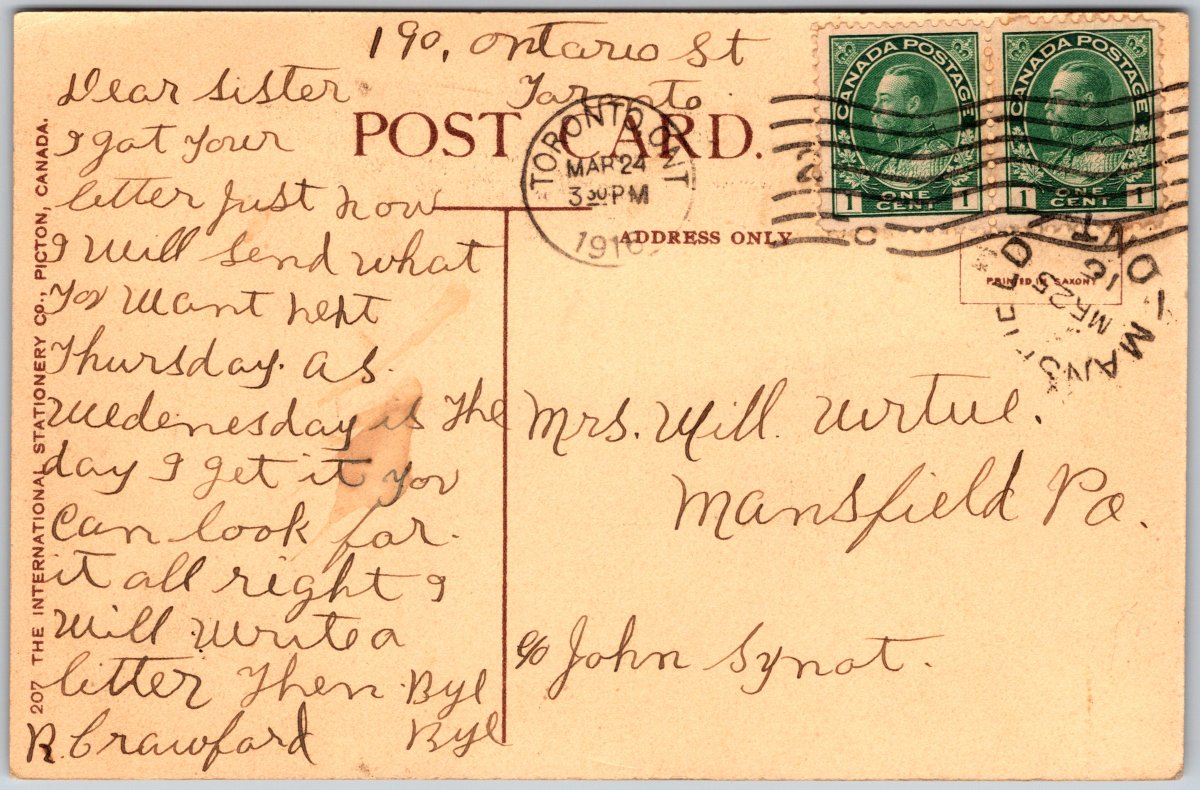 190, Ontario St
Toronto
Dear Sister
I got your
letter just now
I will send what
yor want next
Thursday. as
Wedenesday is the
day I get it yor
can look for.
it all right I
will write a
letter then Bye
Bye
R. Crawford
207 THE INTERNATIONAL STATIONERY CO., PICTON, CANADA.
POST CARD.
ADDRESS ONLY
TORONTO ONT
MAR 24
3 30 PM
CANADA POSTAGE
1 ONE CENT 1
CANADA POSTAGE
1 ONE CENT 1
PRINTED IN SAXONY
MANSFIELD ONT
MR 25
Mrs. Will. Virtue.
Mansfield Po.
c/o John Synot.